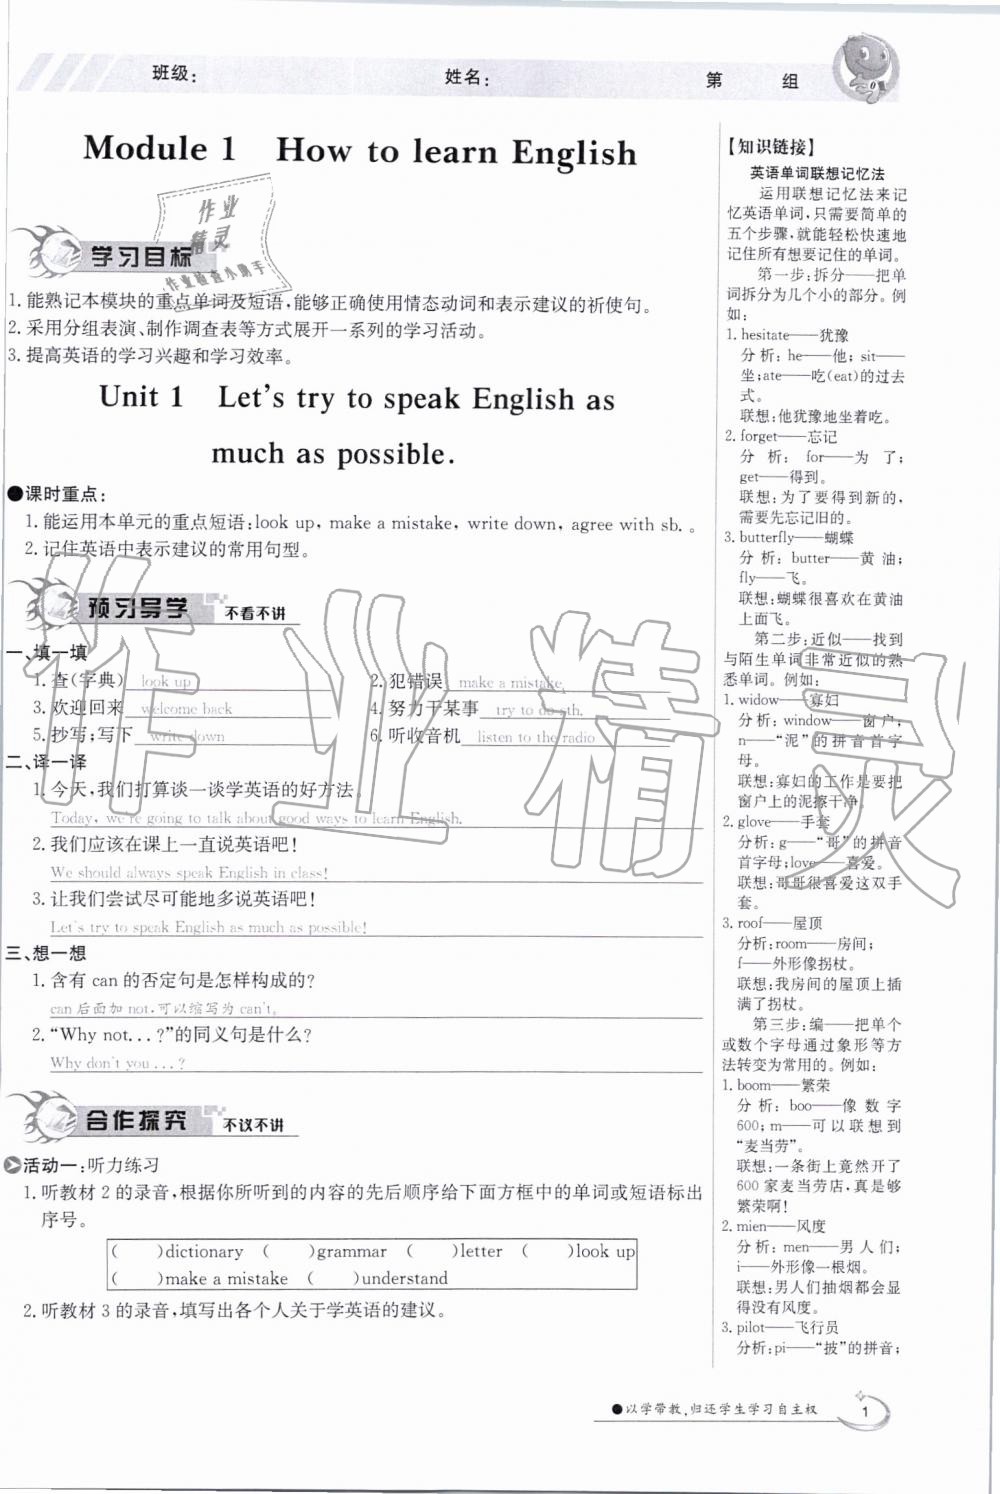 班级:
姓名:
第 组
Module 1 How to learn English
作业
精灵
作业检查小助手
学习目标
1. 能熟记本模块的重点单词及短语,能够正确使用情态动词和表示建议的祈使句。
2. 采用分组表演、制作调查表等方式展开一系列的学习活动。
3. 提高英语的学习兴趣和学习效率。
Unit 1 Let's try to speak English as
much as possible.
●课时重点:
1. 能运用本单元的重点短语:look up, make a mistake, write down, agree with sb. 。
2. 记住英语中表示建议的常用句型。
预习导学 不看不讲
一、填一填
1. 查(字典) look up 2. 犯错误 make a mistake
3. 欢迎回来 welcome back 4. 努力干某事 try to do sth.
5. 抄写;写下 write down 6. 听收音机 listen to the radio
二、译一译
1. 今天,我们打算谈一谈学英语的好方法。
Today, we're going to talk about good ways to learn English.
2. 我们应该在课上一直说英语吧!
We should always speak English in class!
3. 让我们尝试尽可能地多说英语吧!
Let's try to speak English as much as possible!
三、想一想
1. 含有 can 的否定句是怎样构成的?
can 后面加 not,可以缩写为 can't。
2. “Why not...?”的同义句是什么?
Why don't you ...?
合作探究 不议不讲
活动一:听力练习
1. 听教材 2 的录音,根据你所听到的内容的先后顺序给下面方框中的单词或短语标出
序号。
( )dictionary ( )grammar ( )letter ( )look up
( )make a mistake ( )understand
2. 听教材 3 的录音,填写出各个人关于学英语的建议。
【知识链接】
英语单词联想记忆法
运用联想记忆法来记
忆英语单词,只需要简单的
五个步骤,就能轻松快速地
记住所有想要记住的单词。
第一步:拆分——把单
词拆分为几个小的部分。例
如:
1. hesitate——犹豫
分析:he——他; sit——
坐;ate——吃(eat)的过去
式。
联想:他犹豫地坐着吃。
2. forget——忘记
分析: for——为了;
get——得到。
联想:为了要得到新的,
需要先忘记旧的。
3. butterfly——蝴蝶
分析: butter——黄油;
fly——飞。
联想:蝴蝶很喜欢在黄油
上面飞。
第二步:近似——找到
与陌生单词非常近似的熟
悉单词。例如:
1. widow——寡妇
分析:window——窗户;
n——“泥”的拼音首字
母。
联想:寡妇的工作是要把
窗户上的泥擦干净。
2. glove——手套
分析:g——“哥”的拼音
首字母;love——喜爱。
联想:哥哥很喜爱这双手
套。
3. roof——屋顶
分析:room——房间;
f——外形像拐杖。
联想:我房间的屋顶上插
满了拐杖。
第三步:编——把单个
或数个字母通过象形等方
法转变为常用的。例如:
1. boom——繁荣
分析: boo——像数字
600; m——可以联想到
“麦当劳”。
联想:一条街上竟然开了
600 家麦当劳店,真是够
繁荣啊!
2. mien——风度
分析: men——男人们;
i——外形像一根烟。
联想:男人们抽烟都会显
得没有风度。
3. pilot——飞行员
分析:pi——“披”的拼音;
作业精灵
●以学带教,归还学生学习自主权
1